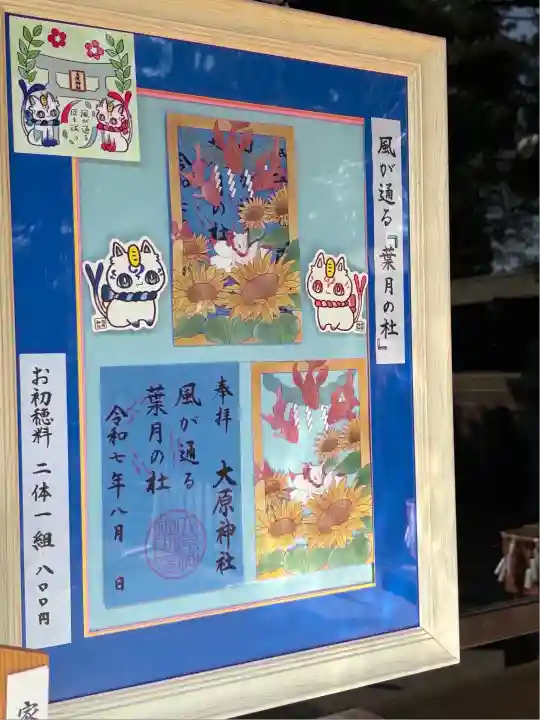 風が通る『葉月の社』
奉拝
大原神社
風が通る
葉月の社
令和七年八月 日
お初穂料 二体一組 八〇〇円
風が通る
家